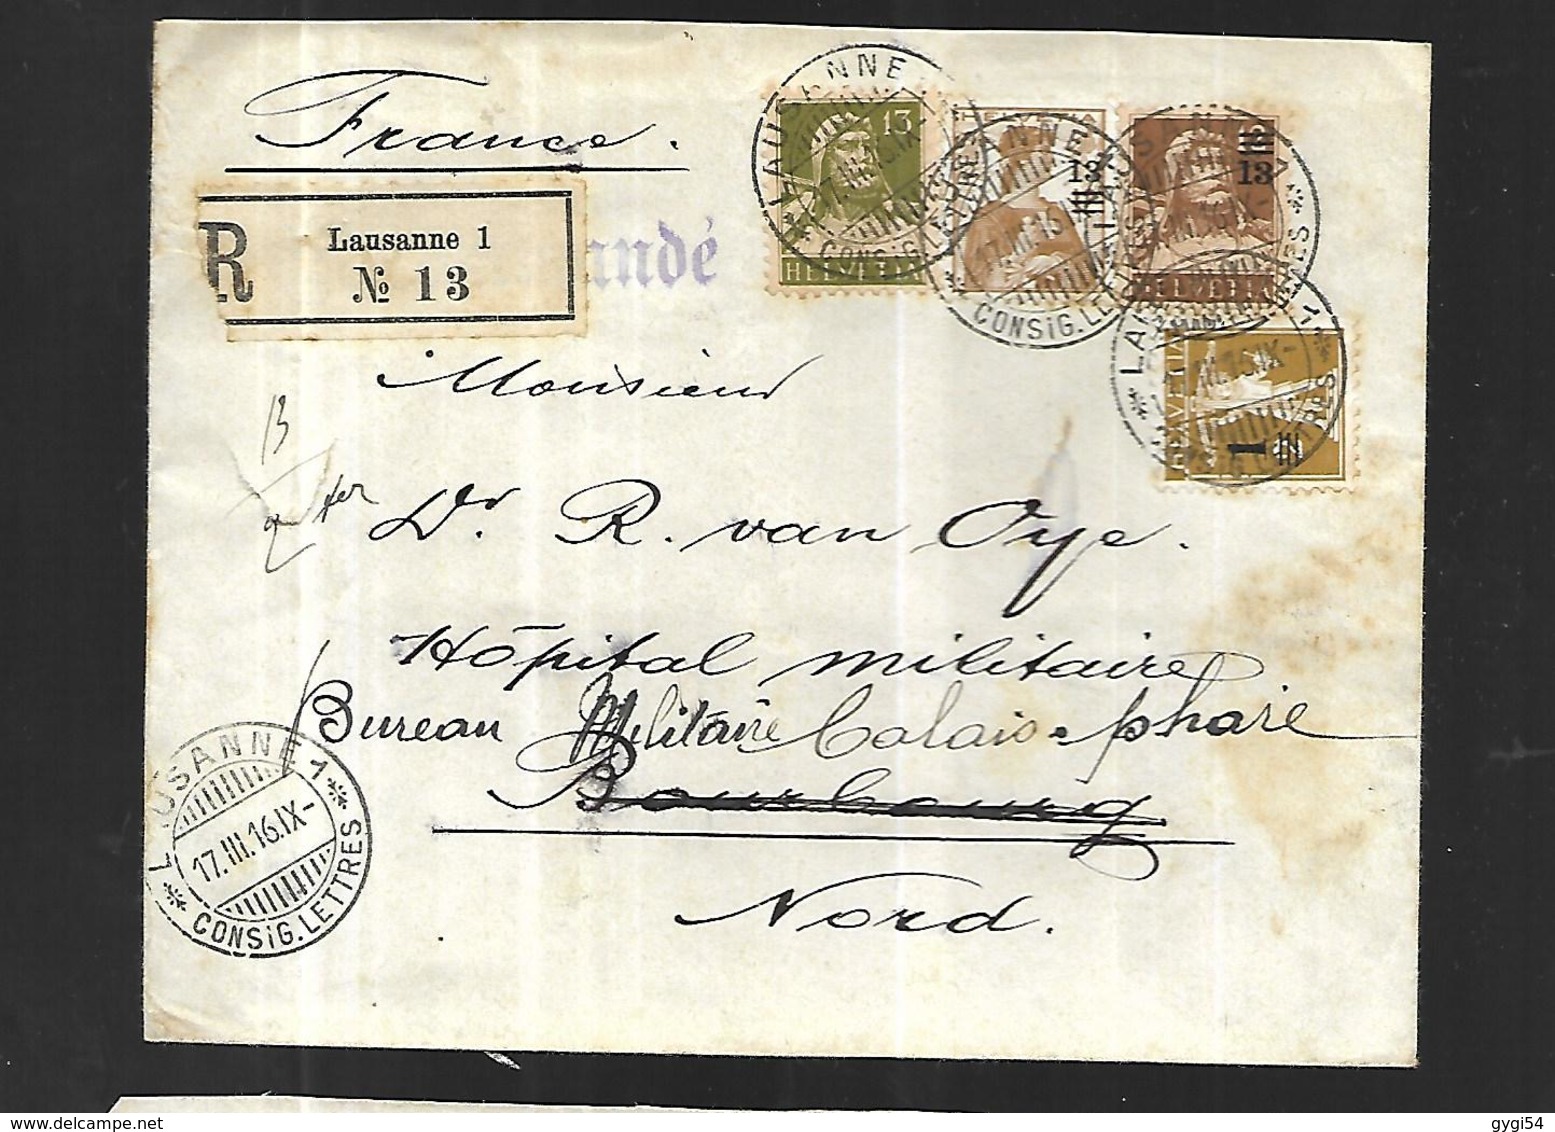 France.
R Lausanne 1
№ 13
andé
Monsieur
13
Dr. R. van Oye.
Hôpital militaire
Bureau Militaire Calais-phare
Bourbourg
Nord.
LAUSANNE 1
17.III.16.IX-
CONSIG.LETTRES
13
HELVETIA
HELVETIA
13
LAUSANNE
17.III.16
CONSIG.LETTRES
13
HELVETIA
HELVETIA
1
gygi54